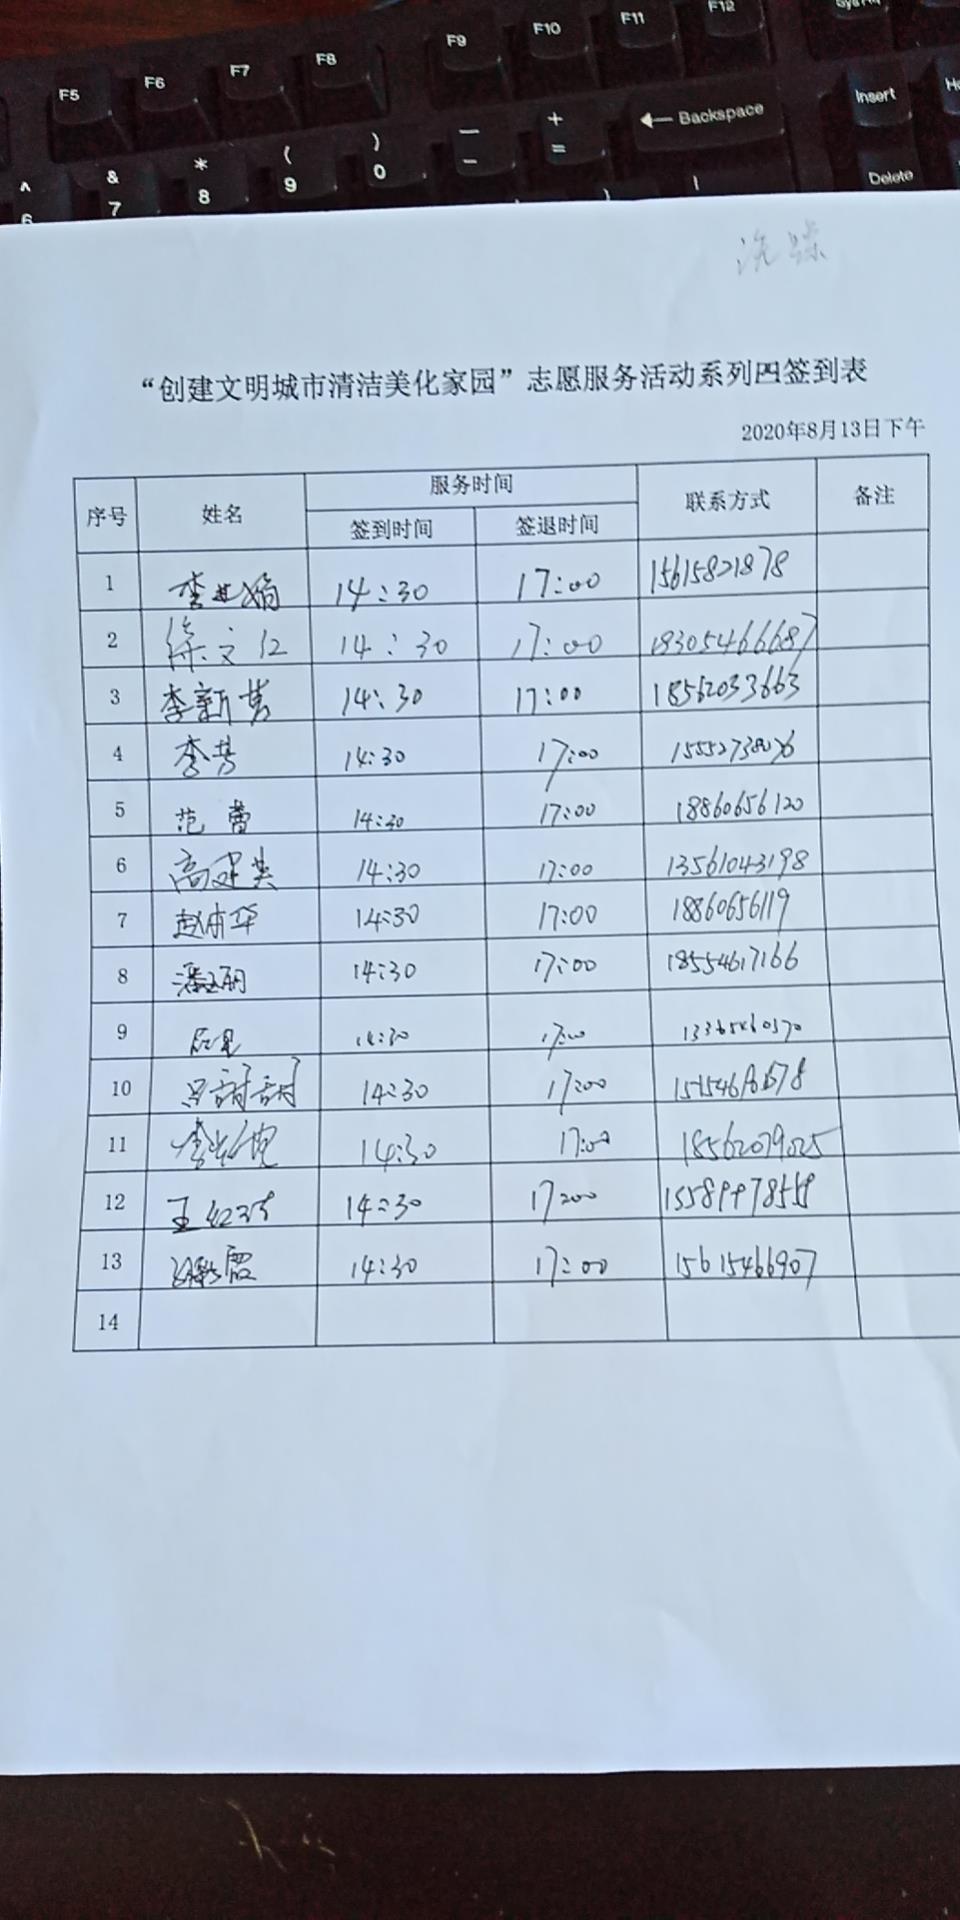 F5 F6 F7 F8 F9 F10 F11 F12
Insert
← Backspace
Delete
^ & * ( ) — +
6 7 8 9 0 - =
“创建文明城市清洁美化家园”志愿服务活动系列四签到表
2020年8月13日下午
序号 姓名 服务时间 联系方式 备注
签到时间 签退时间
1 14:30 17:00 15615821878
2 徐文红 14:30 17:00 18305466687
3 李新 14:30 17:00 18562033663
4 李芳 14:30 17:00 15552738026
5 范蕾 14:30 17:00 18860656120
6 高建英 14:30 17:00 13561043198
7 14:30 17:00 18860656119
8 14:30 17:00 18554617166
9 14:30 17:00
10 吕甜甜 14:30 17:00
11 14:30 17:00 18562079025
12 14:30 17:00
13 14:30 17:00 15615466907
14